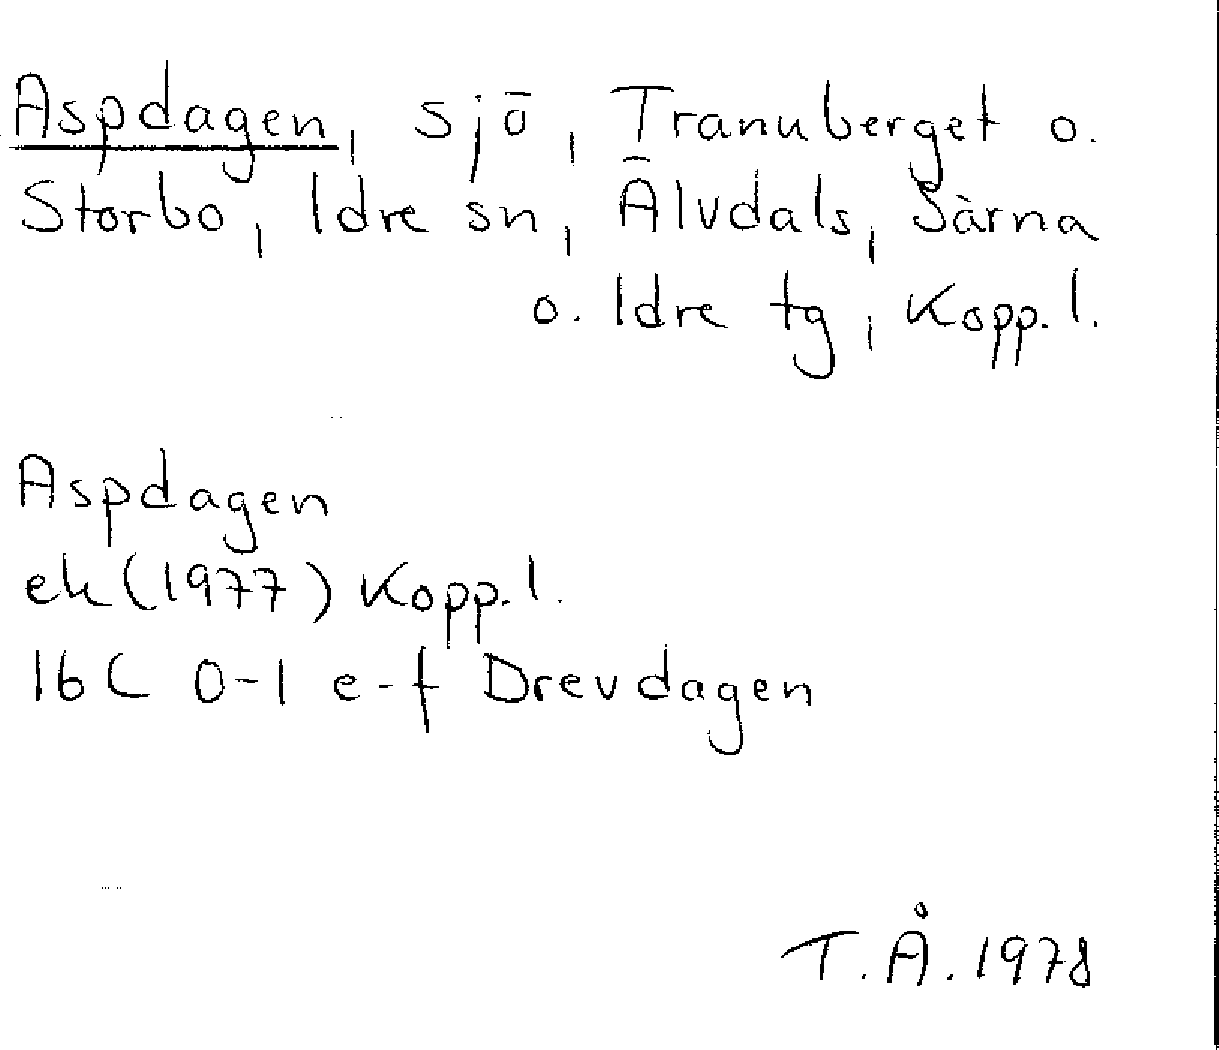 Aspdagen, sjö, Tranuberget o.
Storbo, Idre sn, Älvdals, Särna
o. Idre tg, Kopp. l.
Aspdagen
ek (1977) Kopp. l.
16C 0-1 e-f Drevdagen
T.Å. 1978